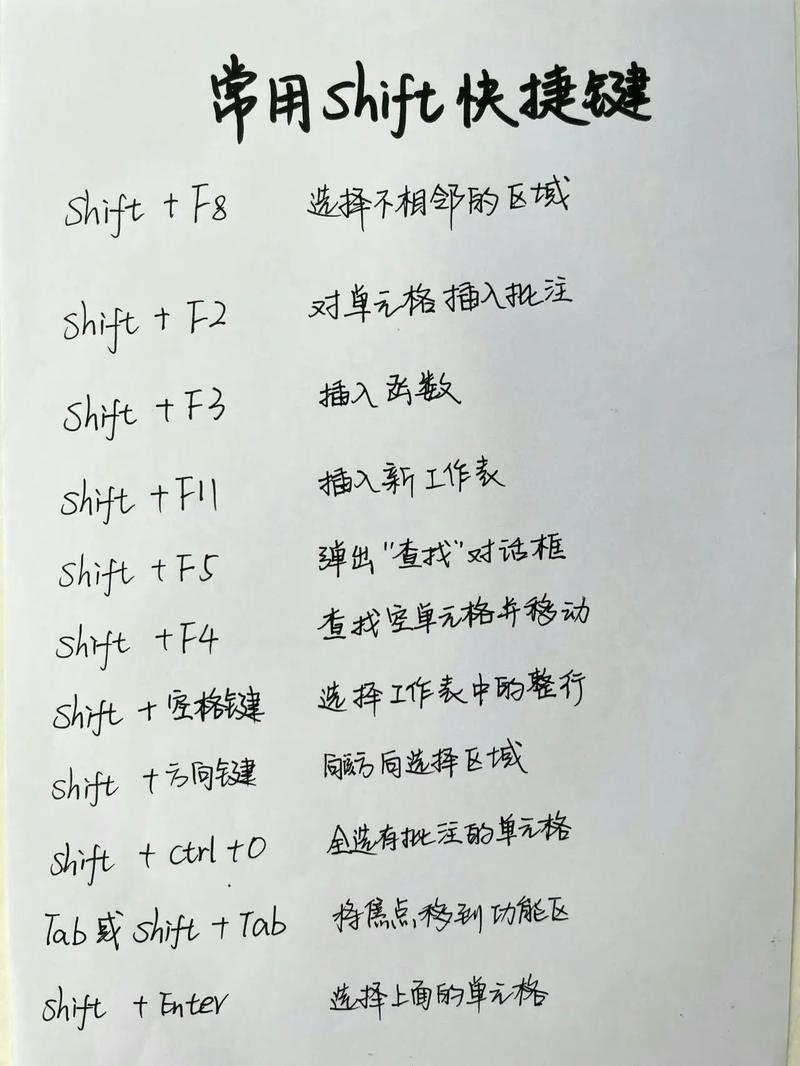 常用Shift快捷键
Shift + F8 选择不相邻的区域
Shift + F2 对单元格插入批注
Shift + F3 插入函数
Shift + F11 插入新工作表
Shift + F5 弹出"查找"对话框
Shift + F4 查找空单元格并移动
Shift + 空格键 选择工作表中的整行
Shift + 方向键 向选择区域
Shift + Ctrl + O 全选有批注的单元格
Tab或Shift + Tab 将焦点移到功能区
Shift + Enter 选择上面的单元格